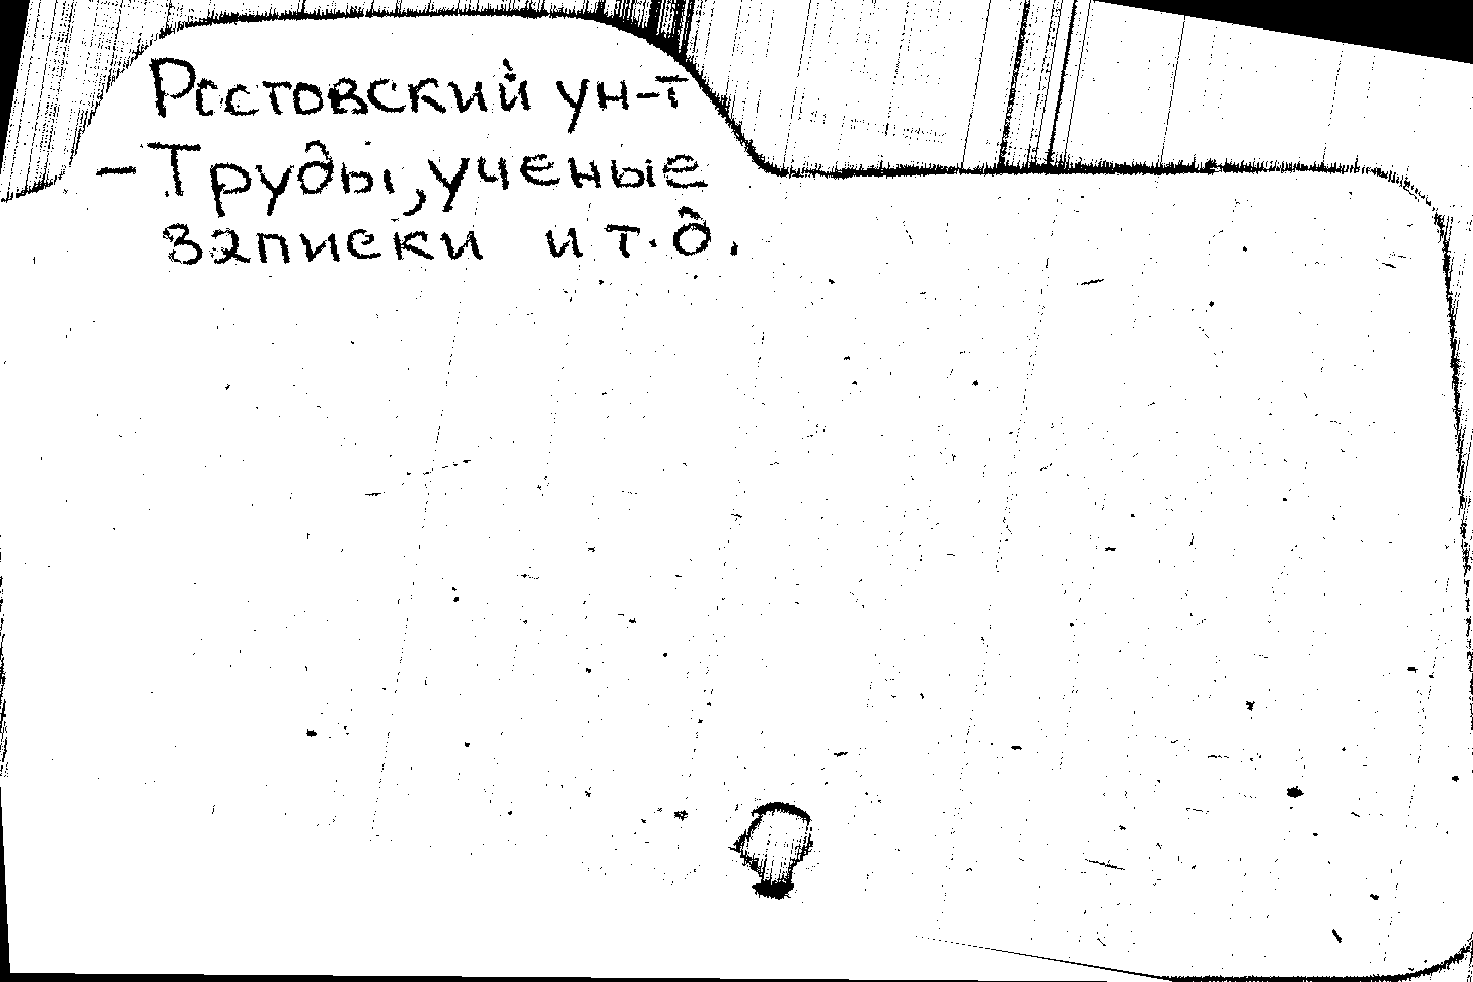 Ростовский ун-т
- Труды, ученые
записки и т.д.